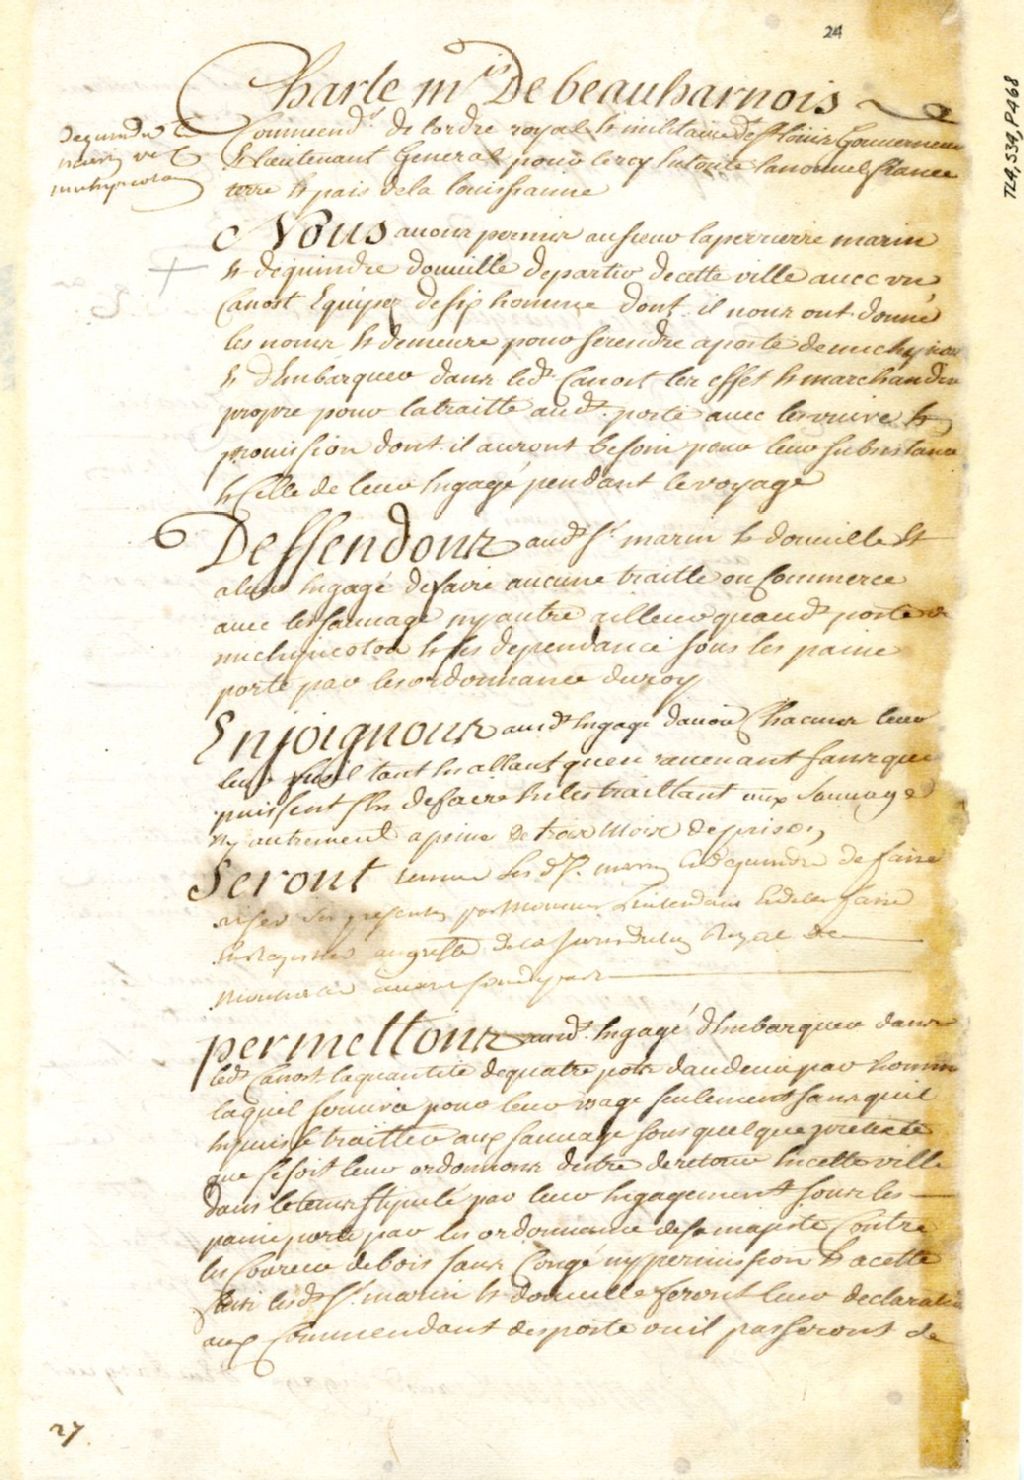 24
TL4, S34, P468
Charle m.is De beauharnois
Commend.r de lordre royal & militaire de St Louis Gouverneur
Dequindre &
marin
michipicoton
& Lieutenant General pour le roy En toute la nouvel france
terre & pais de la louissianne
Nous avons permis au sieur laperrierre marin
& dequindre douville de partir de cette ville avec un
Canost Equiper de six homme dont il nous ont donné
les noms & demeure pour se rendre a poste de michypicoton
& d'Embarquer dans led.t Canost les effet & marchandise
propre pour la traitte aud.t poste avec les vivre &
provission dont il auront besoin pour leur subsistance
& Celle de leur Engagé pendant le voyage
Deffendons aud.t S.r marin & douville Et
a leur Engagé de faire aucune traitte ou Commerce
avec les sauvage ny autre ailleur quaud.t poste de
michipicoton & ses dependance sous les peine
porté par les ordonnance du roy
Enjoignons aud.t Engagé davoir Chacuns leur
leur fusil tant En allant quen revenant sans que
puissent sen defaire En les traittant aux sauvage
ny autrement a peine de trois Mois de prison
Seront tenus les d.ts S.rs marin & dequindre de faire
viser ces presentes par Monsieur L'intendant & de les faire
Enregistrer au greffe de la Jurisdiction Royal de
Montreal avant son depart
permettons aud.t Engagé d'Embarquer dans
led.t Canost la quantité de quatre pots d'audevie par homme
laquel servira pour leur usage seulement sans quil
En puisse traitter aux sauvage sous quelque pretexte
que se soit leur ordonnons detre de retour En cette ville
dans le tems stipulé par leur Engagement sous les
peine porté par les ordonnance de sa majesté Contre
les Coureur de bois sans Congé ny permission & a cette
lesd.ts S.r marin & douville feront leur declaration
aux Commendant des poste ou il passeront de
27